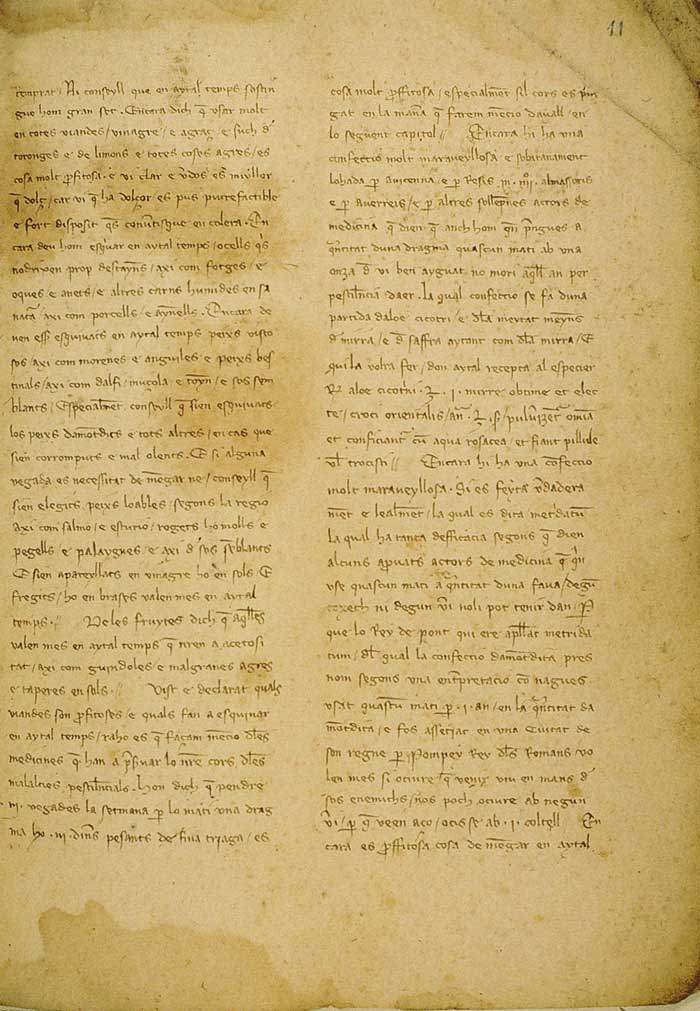 11
temprat. Ni conseyll que en aytal temps sostin
gue hom gran set. Encara dich q̄ usar molt
en totes viandes / vinagre / e agraç e such d̄
toronges e de limons e totes coses agres / es
cosa molt p̄fitosa. e vi clar e v̄dos es miyllor
q̄ dolç / car vi q̄ ha dolçor es pus putrefactible
e fort disposit q̄s conv̄tisque en colera. En
cara deu hom esquar en aytal temps / ocells q̄s
nodrexen prop destayns / axi com fotges / e
oques e anets / e altres carns humides en sa
nat̄a axi com porcells e ayn̄ells. Encara de
uen ess̄ esquivats en aytal temps peixs visco
sos axi com morenes e anguiles e peixs bes
tinals / axi com dalfi / muçola e toyn / e sos sem
blants / Especialmēt conseyll q̄ sien esquivats
los peixs damōtdits e tots altres / en cas que
sien corromputs e mal olents. E si alguna
vegada es necessitat de mēgar ne / conseyll q̄
sien elegits peixs loables / segons la regio
axi com salmo / e esturio / rogers ho molls e
pegells e palaygues / e axi d̄ sos sēblants
E sien apareyllats en vinagre ho en sols. E
fregits / ho en brases valen mes en aytal
temps. // De les fruytes dich q̄ aq̄lles
valen mes en aytal temps q̄ tiren a acetosi
tat / axi com guindoles e malgranes agres
e taperes en sols. // Vist e declarat quals
viandes son p̄fitoses e quals fan a esquivar
en aytal temps / raho es q̄ façam mēcio dles
medicines q̄ han a p̄suar lo nr̄e cors dles
malalties pestilēcials. Hon dich q̄ pendre
.iii. vegades la setmana p̄ lo mati una drag
ma ho .vi. dins̄ pesants de fina triaga / es
cosa molt p̄ffitosa / especialmēt sil cors es pur
gat en la man̄a q̄ farem mēcio davall / en
lo seguent capitol // Encara hi ha una
confectio molt maraveyllosa e sobiranament
lohada p̄ Avicenna e p̄ Rasis in .iiii. almassoris
e p̄ Averreis / e p̄ altres sollēpnes actors de
medicina q̄ dien q̄ anch hom qn̄ p̄ngues a
q̄ntitat duna dragma quascun mati ab una
onza d̄ vi ben ayguat no mori aq̄ll an per
pestilēcia daer. La qual confectio se fa duna
partida daloe cicotri e dla meytat meyns
d̄ mirra / e d̄ saffra aytant com dla mirra / E
qui la volra fer / don aytal recepta al especier
R̄ aloe cicotrin̄ .ʒ. i. mirre obtime et elec
te / croci orientalis / an̄ .ʒ. ß. / pulv̄izent̄ om̄ia
et conficiant̄ cū aqua rosacea et fiant pillule
vl̄ trocisci // Encara hi ha una confectio
molt maraveyllosa. Si es feyta v̄dadera
mēt e lealmēt / la qual es dita metdatū
La qual ha tanta defficacia segons q̄ dien
alcuns ap̄vats actors de medicina q̄ q̄n
use quascun mati a q̄ntitat duna fava / degū
tozech ni degun v̄i noli pot tenir dan / P̄
que lo Rey de pont qui ere ap̄llat metrida
tum / dl̄ qual la confectio damōtdita pres
nom segons una entrpretacio co nagues
usat quascū mati p̄ .i. an / en la q̄ntitat da
mōtdita / e fos assetjat en una ciutat de
son regne p̄ Pompey Rey dls Romans vo
len mes si ociure q̄ venir viu en mans d̄
sos enemichs / nos poch ociure ab negun
v̄i / p̄ q̄ veen aço / ocis se ab .i. coltell En
cara es p̄ffitosa cosa de mēgar en aytal